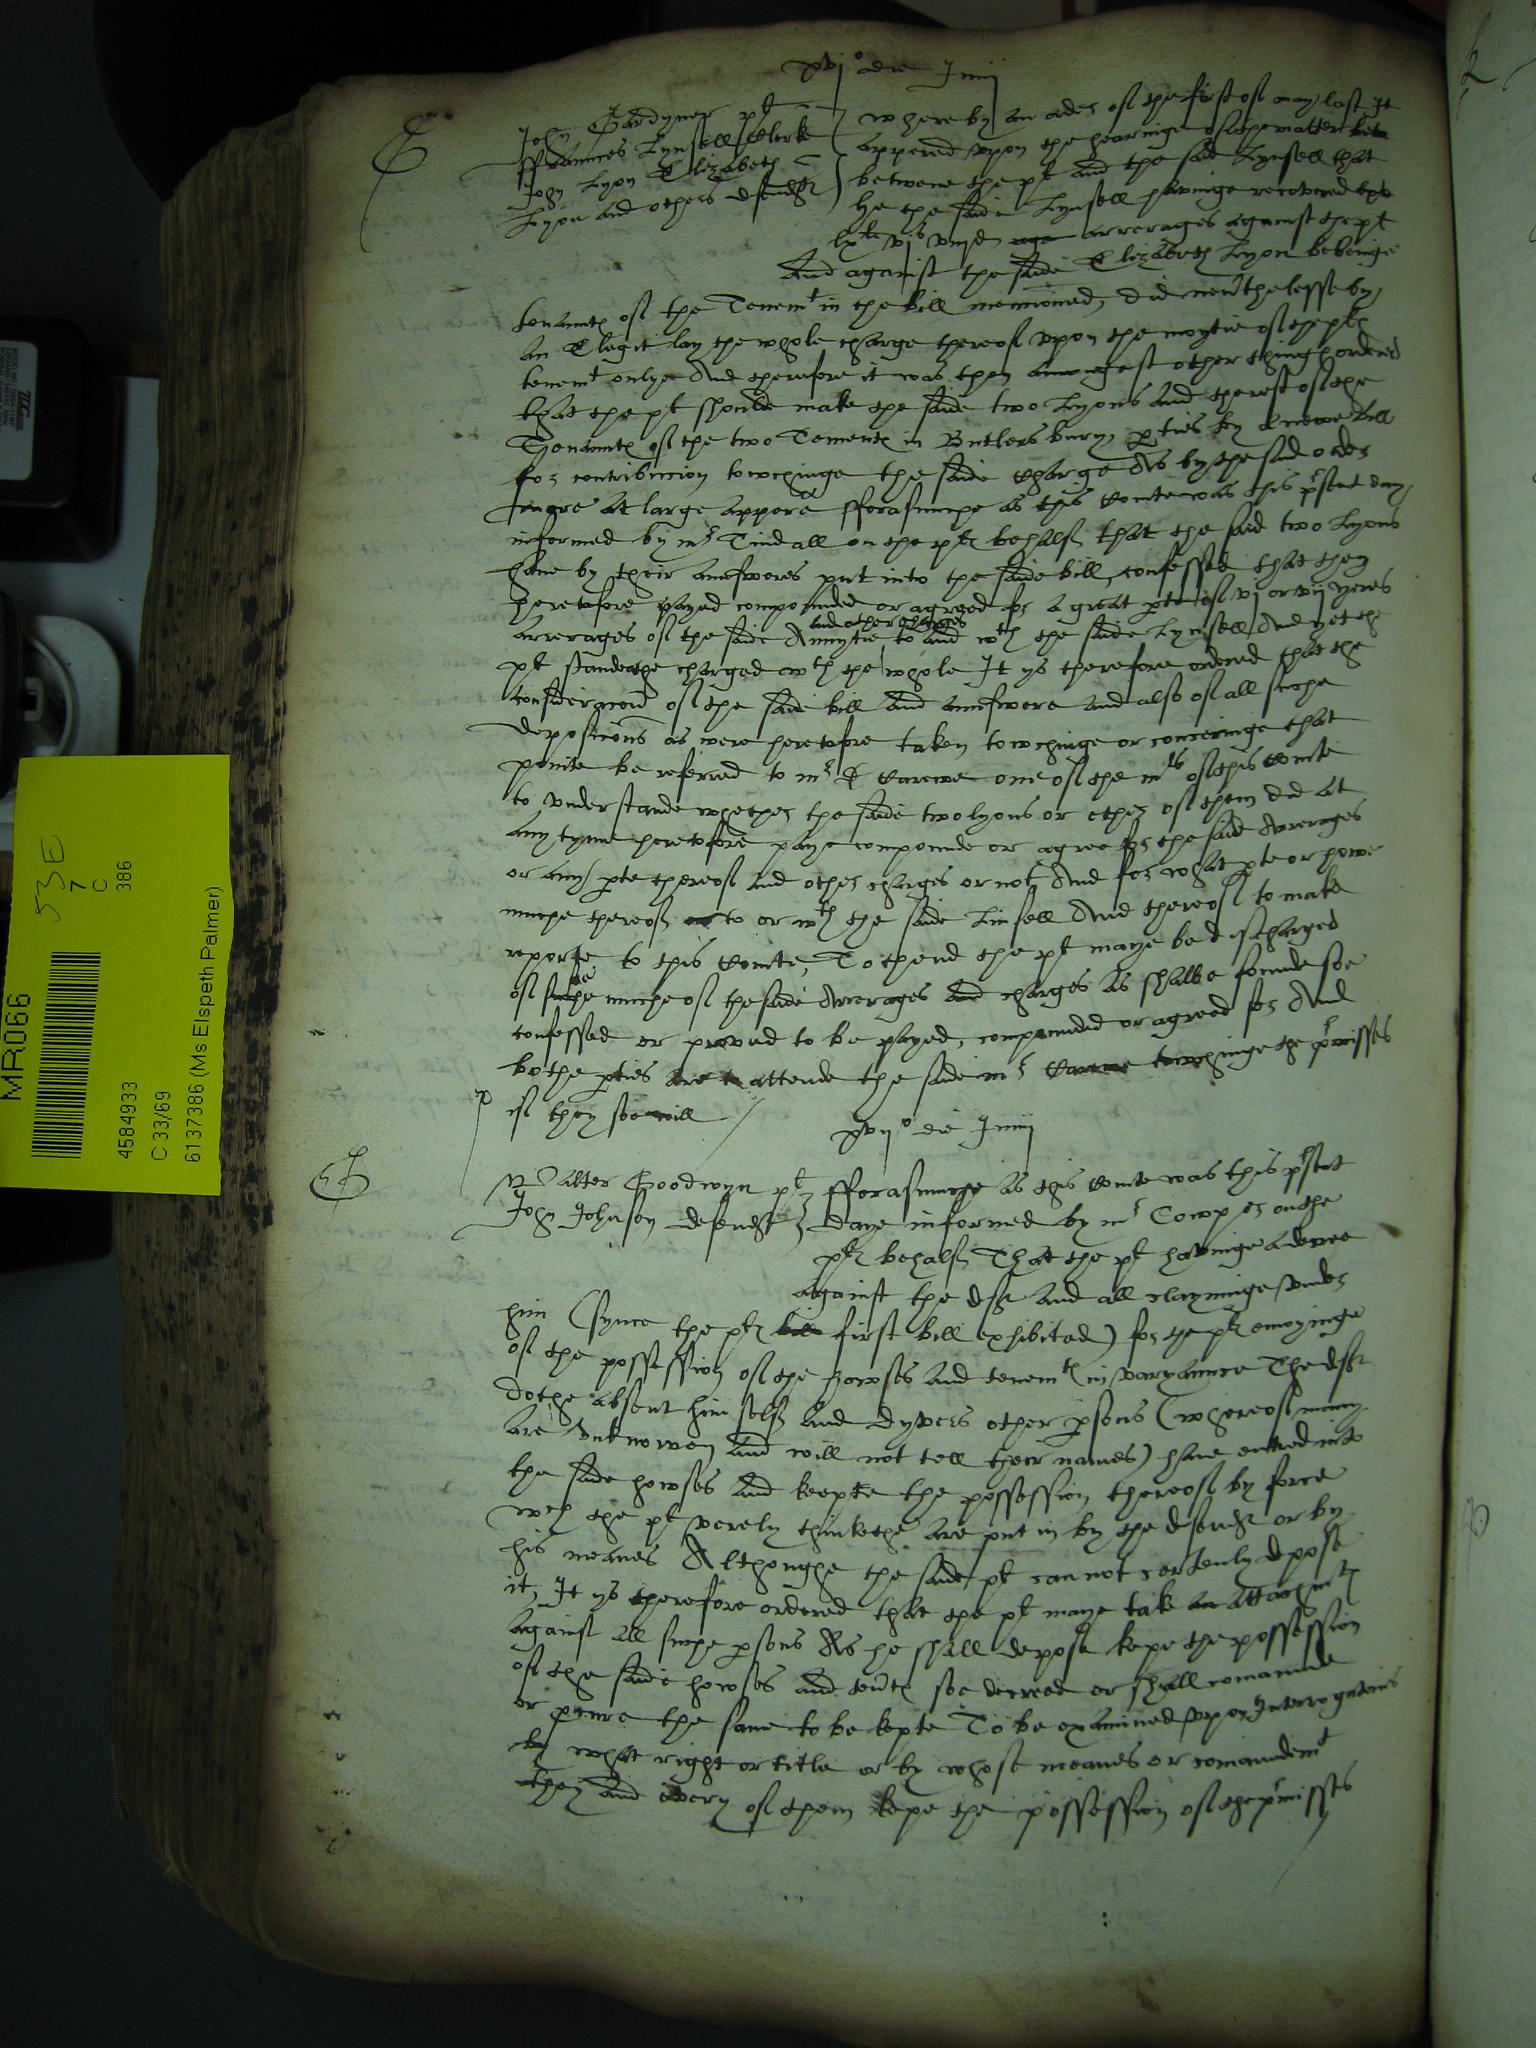 xvj° die Junij
John Gardyner pt
ffraunces Lynsell Clerk
John Lyon Elizabeth
Lyon and others defendtes
Whereby an order of the first of may last It
appered vpon the hearinge of the matter bet
betwene the pt and the said Lynsell that
he the saide Lynsell havinge recovered
lxli vjs viijd aga arrerages against the pt
And against the saide Elizabeth Lyon beinge
tenauntes of the Tenemt in the bill mencioned, did neuerthelesse by
an Elegit lay the whole charge thereof vpon the moytie of the ptes
tenemt onlye And therefore it was then amongest other thinges ordered
that the pt should make the saide two Lyons and the rest of the
Tenauntes of the two Tementes in Butlers bury, parties by a newe bill
for contribucion towchinge the saide charge As by the said order
more at large apperes fforasmuche as this Courte was this present day
informed by mr Tindall on the ptes behalf that the said two Lyons
haue by their aunsweres put into the saide bill, confessed that they
heretofore payed compounded or agreed for a great parte of vj or vij yeres
and other charges
arrerages of the saide Annuytie to and wth the saide Lynsell And yet the
pt standethe charged wth the whole It ys therefore ordered that the
consideracion of the saide bill and aunswere and also of all suche
deposicions as were heretofore taken towchinge or concerninge that
pointe be referred to mr D Carewe one of the mrs of this Courte
to vnderstande whether the saide two lyons or ether of them did at
any tyme heretofore paye compounde or agree for the said Arrerages
or any parte thereof and other charges or not And for what parte or howe
muche thereof to or wth the saide Linsell And thereof to make
reporte to this Courte, To thend the pt maye be discharged
of soe muche of the saide Arrerages and charges as shalbe founde soe
confessed or proved to be payed, compounded or agreed for And
bothe parties are to attende the saide mr Carewe towchinge the premisses
if they soe will
xvij° die Junij
Walter Goodwyn pt
John Johnson defendt
fforasmuche as this Courte was this present
daye informed by mr Cowper on the
ptes behalf That the pt havinge a decree
against the deft and all clayminge vnder
him (synce the ptes bill first bill exhibited) for the ptes enioyinge
of the possession of the howses and tenemtes in varyaunce The deft
dothe absent him self and dyvers other persons (whereof many
are vnknowen and will not tell their names) haue entred into
the saide howses and keepte the possession thereof by force
wch the pt verely thinkethe are put in by the defendt or by
his meanes Althoughe the saide pt can not certenly depose
it, It ys therefore ordered that the pt maye take an attachmtes
against all suche persons As he shall depose kepe the possession
of the saide howses and tentes soe decreed or shall comaunde
or procure the same to be kepte To be examined vpon Interrogatories
by what right or title or by whose meanes or comaundemt
they and every of them kepe the possession of the premisses
MR066
53E
7
C
386
4584933
C 33/69
6137386 (Ms Elspeth Palmer)